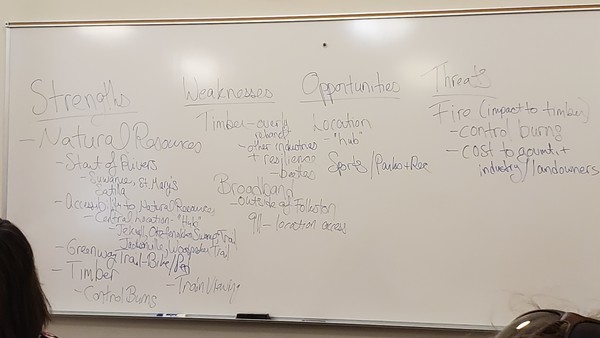 Strengths
- Natural Resources
- Start of Rivers
- Suwannee, St. Mary's
Satilla
- Accessibility to Natural Resources
- Central location - "Hub"
- Jekyll, Okefenokee Swamp, Trail
Jacksonville, Woodpecker Trail
- Greenway Trail - Bike/Ped
- Timber
- Control Burns
- Train Viewing
Weaknesses
Timber - overly
reliant
- other industries
+ resilience
- beetles
Broadband
- Outside of Folkston
911 - location across
Opportunities
Location
- "hub"
Sports/Parks + Rec
Threats
Fire (impact to timber)
- control burns
- cost to gov.mt. +
industry/landowners